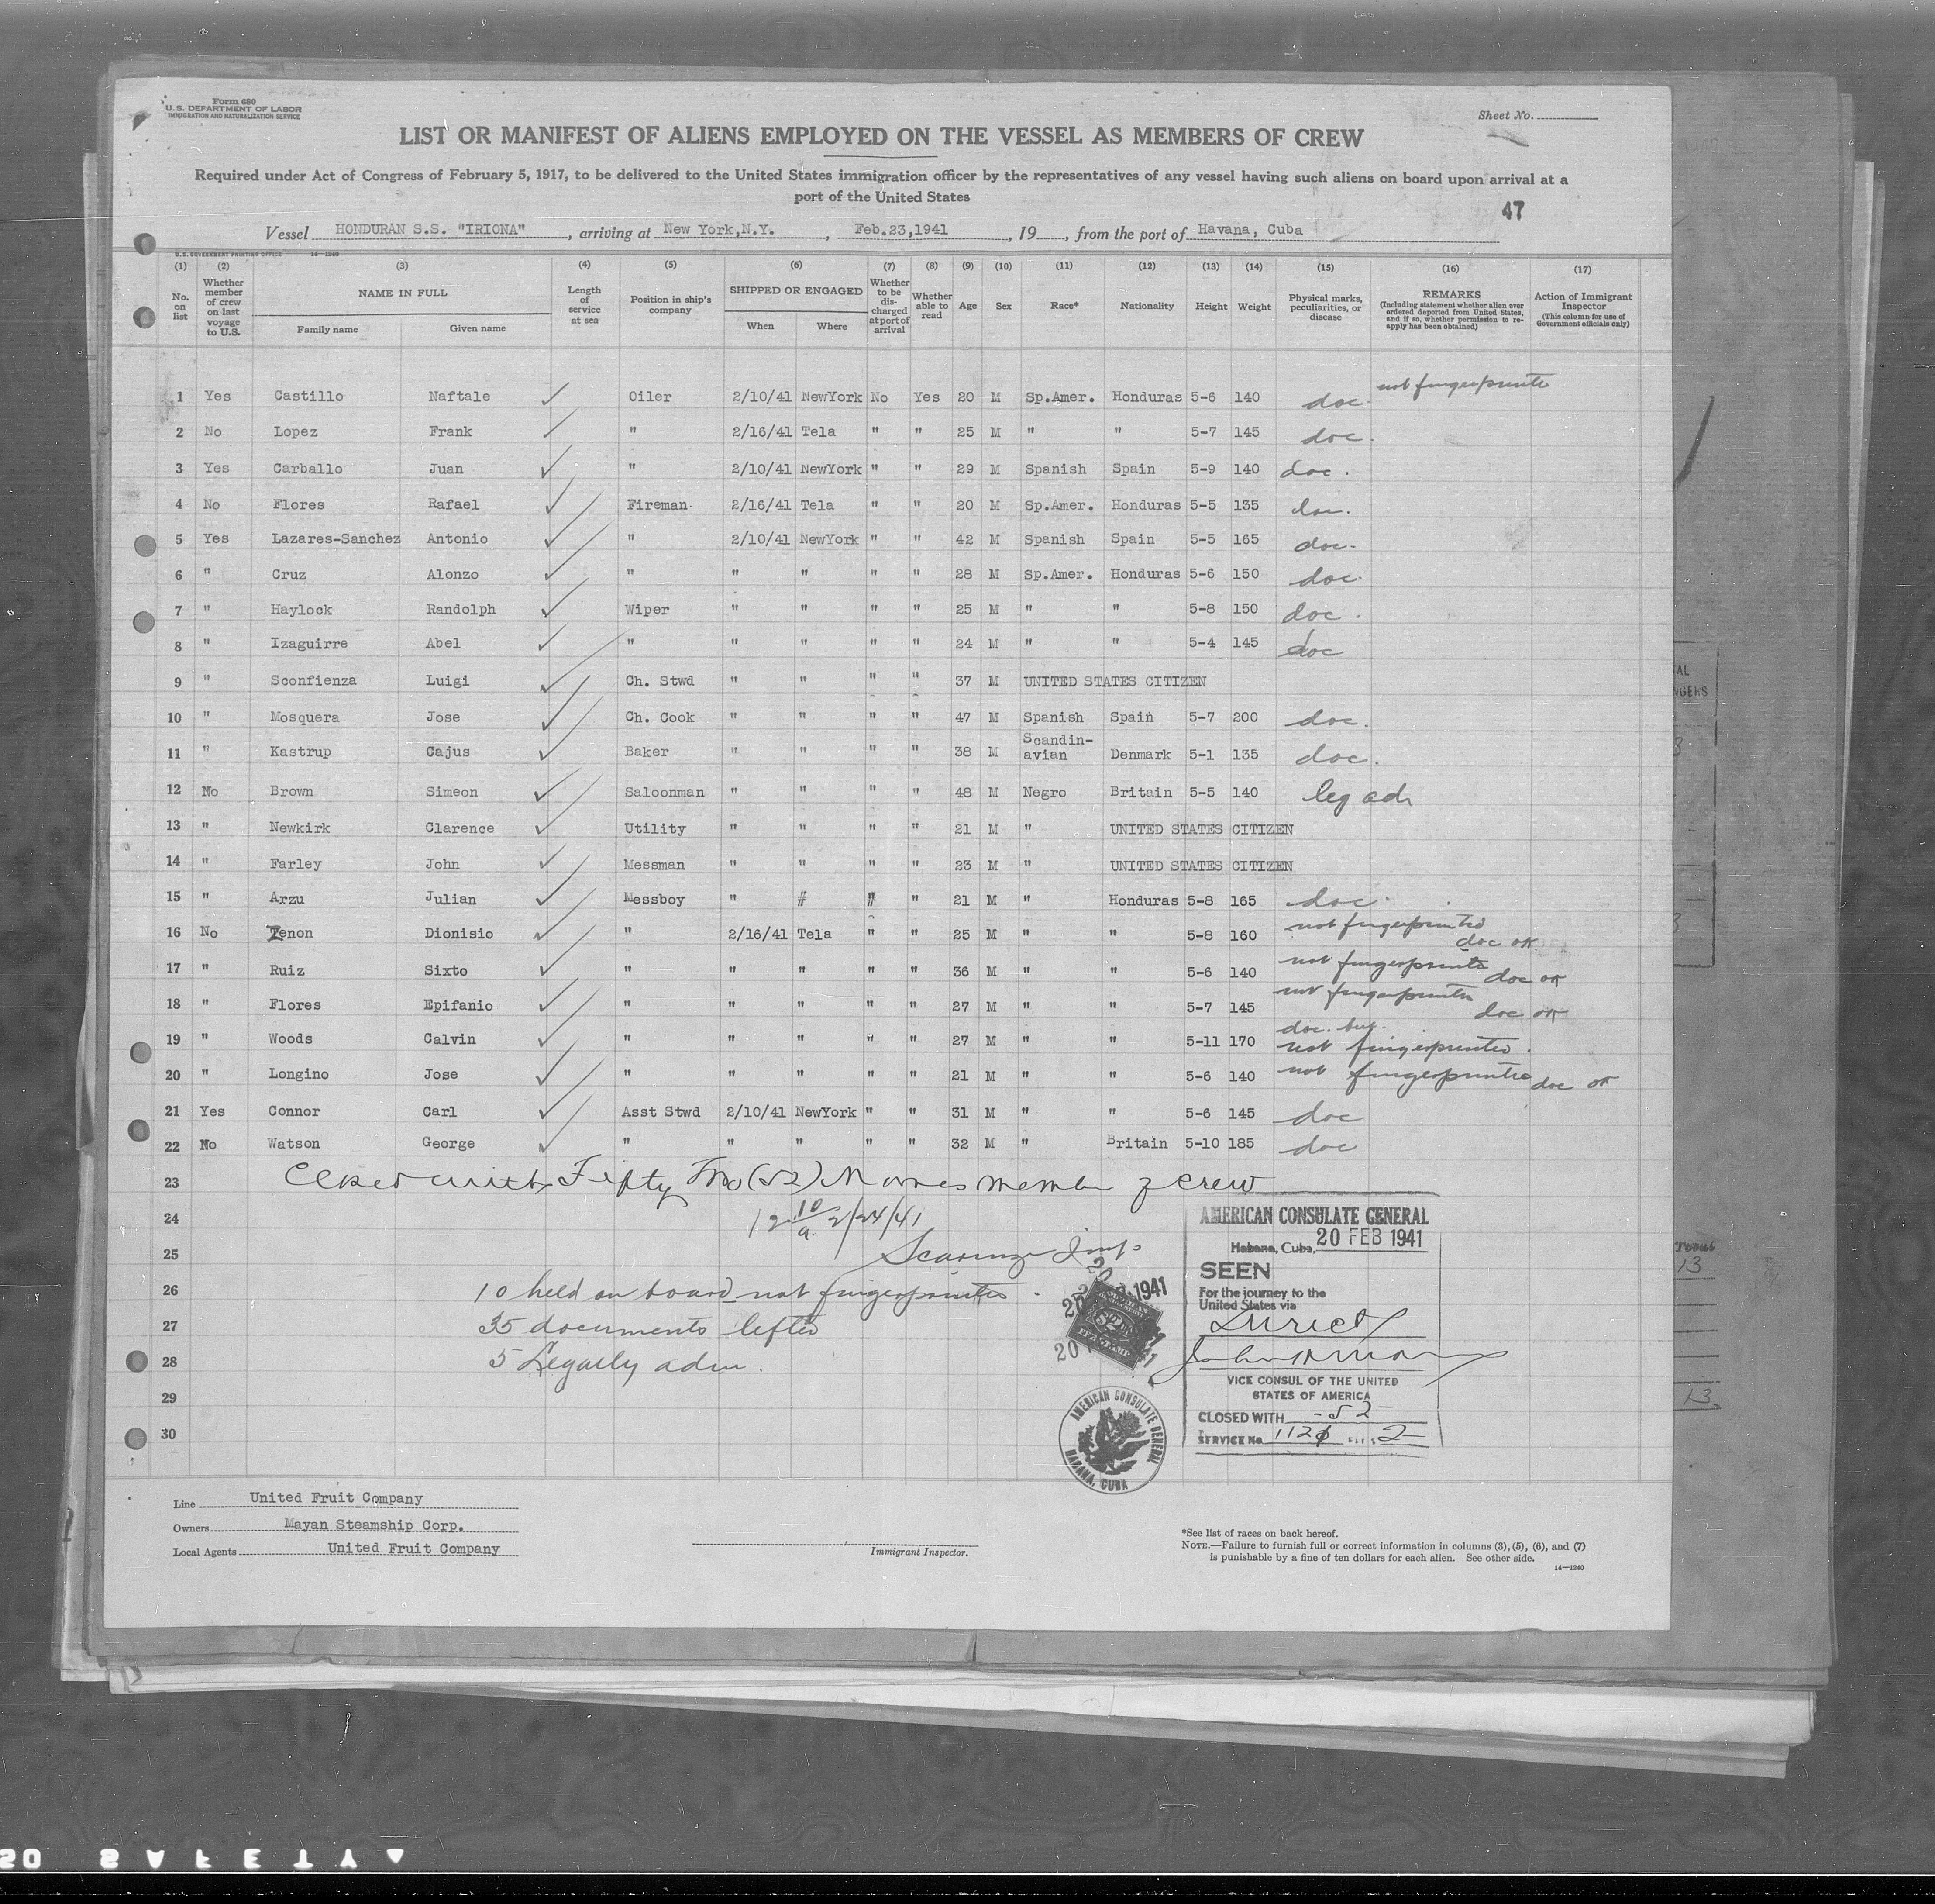 Form 680
U.S. DEPARTMENT OF LABOR
IMMIGRATION AND NATURALIZATION SERVICE
Sheet No.
LIST OR MANIFEST OF ALIENS EMPLOYED ON THE VESSEL AS MEMBERS OF CREW
Required under Act of Congress of February 5, 1917, to be delivered to the United States immigration officer by the representatives of any vessel having such aliens on board upon arrival at a
port of the United States
47
Vessel HONDURAN S.S. "IRIONA", arriving at New York,N.Y., Feb.23,1941, 19, from the port of Havana, Cuba
U.S. GOVERNMENT PRINTING OFFICE 14—1240
(1) (2) (3) (4) (5) (6) (7) (8) (9) (10) (11) (12) (13) (14) (15) (16) (17)
No. on list
Whether member of crew on last voyage to U.S.
NAME IN FULL
Family name Given name
Length of service at sea
Position in ship's company
SHIPPED OR ENGAGED
When Where
Whether to be discharged at port of arrival
Whether able to read
Age
Sex
Race*
Nationality
Height
Weight
Physical marks, peculiarities, or disease
REMARKS
(Including statement whether alien ever ordered deported from United States, and if so, whether permission to reapply has been obtained)
Action of Immigrant Inspector
(This column for use of Government officials only)
1 Yes Castillo Naftale Oiler 2/10/41 NewYork No Yes 20 M Sp.Amer. Honduras 5-6 140 doc. not fingerprinted
2 No Lopez Frank " 2/16/41 Tela " " 25 M " " 5-7 145 doc.
3 Yes Carballo Juan " 2/10/41 NewYork " " 29 M Spanish Spain 5-9 140 doc.
4 No Flores Rafael Fireman 2/16/41 Tela " " 20 M Sp.Amer. Honduras 5-5 135 doc.
5 Yes Lazares-Sanchez Antonio " 2/10/41 NewYork " " 42 M Spanish Spain 5-5 165 doc.
6 " Cruz Alonzo " " " " " 28 M Sp.Amer. Honduras 5-6 150 doc.
7 " Haylock Randolph Wiper " " " " 25 M " " 5-8 150 doc.
8 " Izaguirre Abel " " " " " 24 M " " 5-4 145 doc
9 " Sconfienza Luigi Ch. Stwd " " " " 37 M UNITED STATES CITIZEN
10 " Mosquera Jose Ch. Cook " " " " 47 M Spanish Spain 5-7 200 doc.
11 " Kastrup Cajus Baker " " " " 38 M Scandin-avian Denmark 5-1 135 doc.
12 No Brown Simeon Saloonman " " " " 48 M Negro Britain 5-5 140 leg adm
13 " Newkirk Clarence Utility " " " " 21 M " UNITED STATES CITIZEN
14 " Farley John Messman " " " " 23 M " UNITED STATES CITIZEN
15 " Arzu Julian Messboy " # # " 21 M " Honduras 5-8 165 doc.
16 No Zenon Dionisio " 2/16/41 Tela " " 25 M " " 5-8 160 not fingerprinted doc ok
17 " Ruiz Sixto " " " " " 36 M " " 5-6 140 not fingerprinted doc ok
18 " Flores Epifanio " " " " " 27 M " " 5-7 145 not fingerprinted doc ok
19 " Woods Calvin " " " " " 27 M " " 5-11 170 doc. not fingerprinted.
20 " Longino Jose " " " " " 21 M " " 5-6 140 not fingerprinted doc ok
21 Yes Connor Carl Asst Stwd 2/10/41 NewYork " " 31 M " " 5-6 145 doc
22 No Watson George " " " " " 32 M " Britain 5-10 185 doc
23 Closed with Fifty Two (52) Names member of crew
24 12 10/a 2/24/41
25
26 10 held on board not fingerprinted.
27 35 documents lifted
28 5 Legally adm.
29
30
AMERICAN CONSULATE GENERAL
Habana, Cuba, 20 FEB 1941
SEEN
For the journey to the
United States via
Direct
VICE CONSUL OF THE UNITED
STATES OF AMERICA
CLOSED WITH -52-
SERVICE No. 1126 2
AMERICAN CONSULATE GENERAL
HABANA, CUBA
Line United Fruit Company
Owners Mayan Steamship Corp.
Local Agents United Fruit Company
Immigrant Inspector.
*See list of races on back hereof.
NOTE.—Failure to furnish full or correct information in columns (3), (5), (6), and (7)
is punishable by a fine of ten dollars for each alien. See other side.
14—1240
Total
13
13
SAFETY